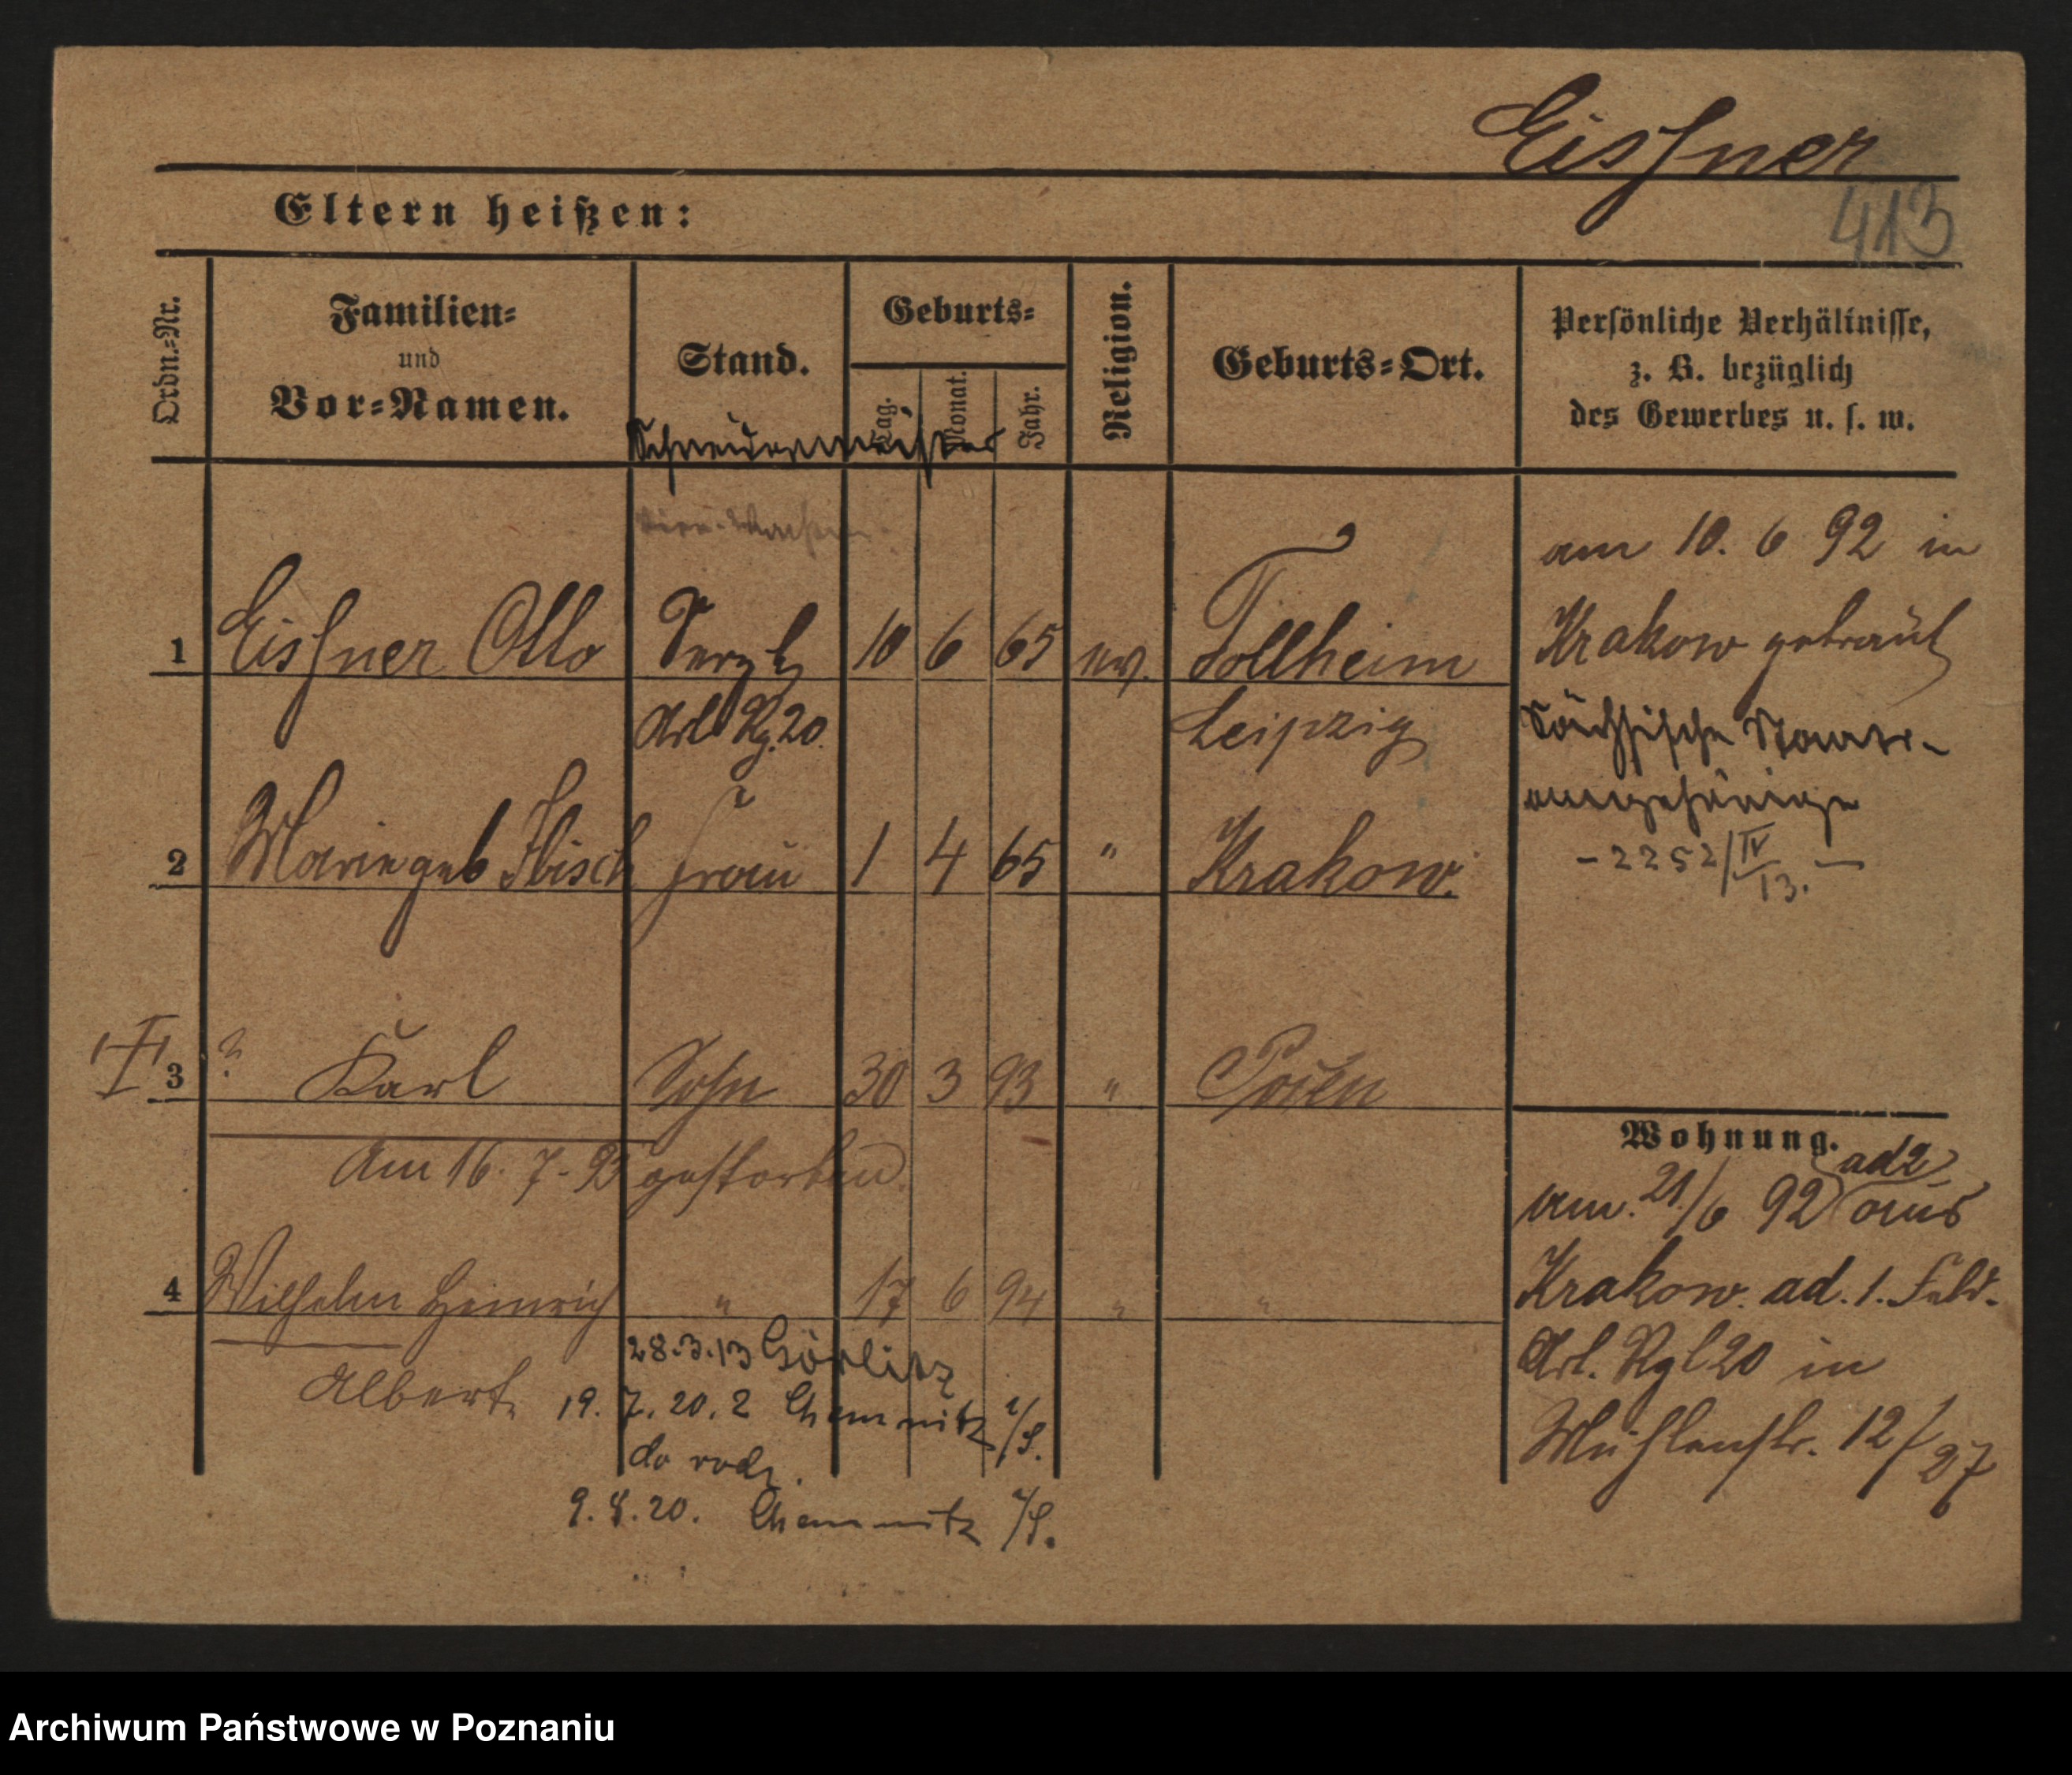 Eissner
413
Eltern heißen:
Ordn.=Nr.
Familien=
und
Vor=Namen.
Stand.
Geburts=
Tag.
Monat.
Jahr.
Religion.
Geburts=Ort.
Persönliche Verhältnisse,
z. B. bezüglich
des Gewerbes u. s. w.
Schneidermeister
1 Eissner Otto Sergt 10 6 65 ev. Tollheim
Art Rg. 20. Leipzig
am 10. 6 92 in
Krakow getraut
Sächsische Staats-
angehörige
- 2252/IV 13. -
2 Marie geb Ibisch Frau 1 4 65 " Krakow.
3 ? Karl Sohn 30 3 93 " Posen
Am 16. 7. 93 gestorben
4 Wilhelm Heinrich " 17 6 94 " "
Albert
28.3.13 Görlitz
19. 7. 20. 2 Chemnitz i/S.
do rodz.
9. 8. 20. Chemnitz i/S.
Wohnung.
ad 2
am 21/6 92 aus
Krakow. ad. 1. Feld-
Art. Rgt 20 in
Mühlenstr. 12/27
Archiwum Państwowe w Poznaniu